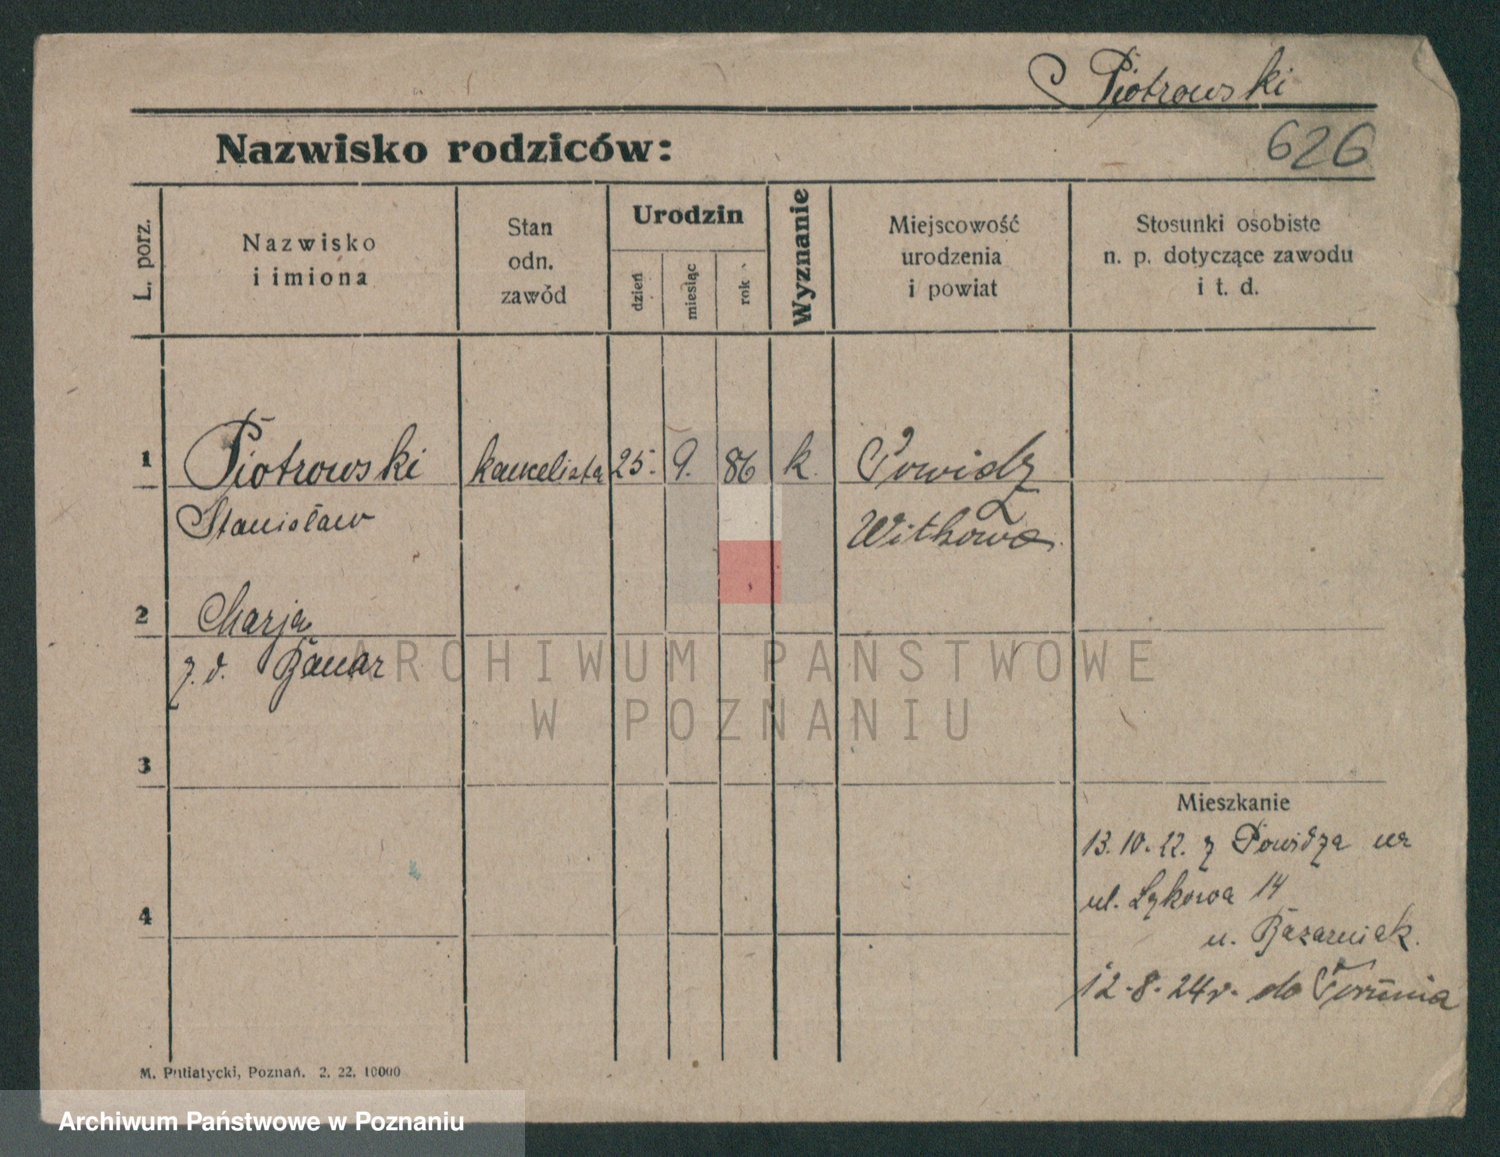 Piotrowski
Nazwisko rodziców:
626
L. porz.
Nazwisko
i imiona
Stan
odn.
zawód
Urodzin
dzień
miesiąc
rok
Wyznanie
Miejscowość
urodzenia
i powiat
Stosunki osobiste
n. p. dotyczące zawodu
i t. d.
1
Piotrowski
kancelista
25.
9.
86
k.
Powidz
Stanisław
Witkowo
2
Marja
z. d.
ARCHIWUM PAŃSTWOWE
W POZNANIU
3
Mieszkanie
13. 10. 22. z Powidza
ul. 14
4
u. Bazarniak.
12-8-24r. do Torunia
M. Putiatycki, Poznań. 2. 22. 10000
Archiwum Państwowe w Poznaniu